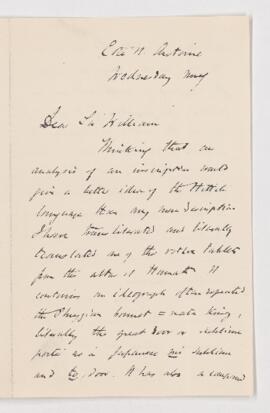 Wednesday
Dear Sir William
Thinking that an
analysis of an inscription would
give a better idea of the Hittite
language than any mere description
I have transliterated and literally
translated one of the votive tablets
from the altar at Hamath. It
contains an ideograph often repeated
the Phrygian bonnet = mata king,
literally the great door or sublime
porte as in Japanese mi sublime
and to, door. It has also a compound